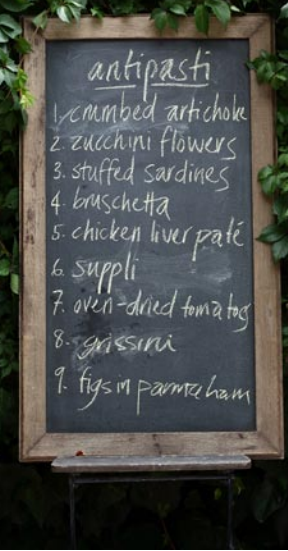 antipasti
1. crumbed artichoke
2. zucchini flowers
3. stuffed sardines
4. bruschetta
5. chicken liver paté
6. suppli
7. oven-dried tomatoes
8. grissini
9. figs in parma ham